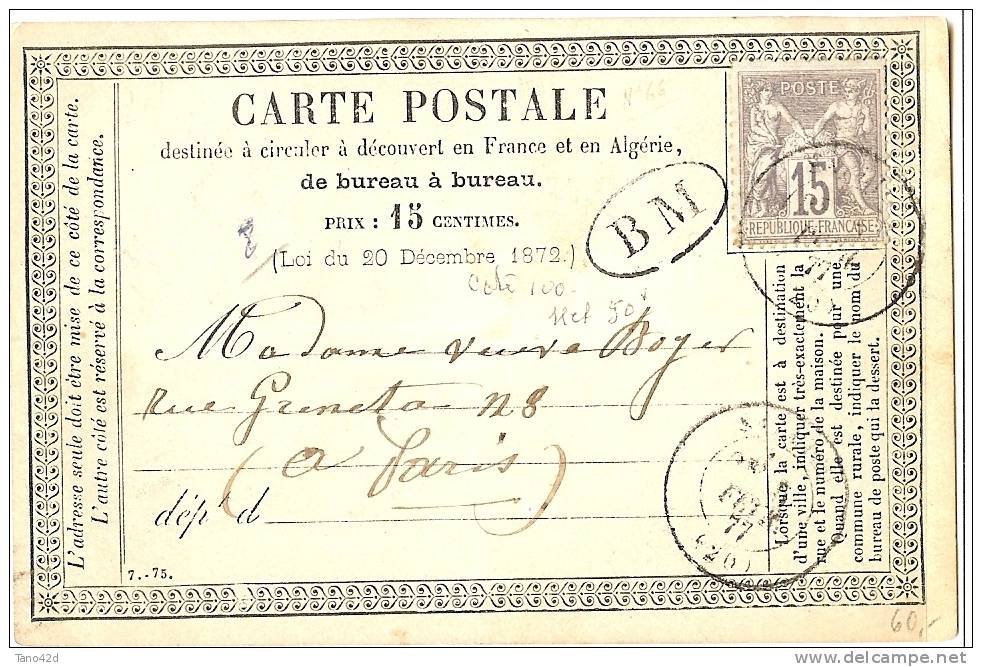 CARTE POSTALE
destinée à circuler à découvert en France et en Algérie,
de bureau à bureau.
PRIX : 15 CENTIMES.
(Loi du 20 Décembre 1872.)
N°66
POSTE
15
REPUBLIQUE FRANÇAISE
BM
77
Cote 100-
Net 50
Madame veuve Boyer
rue Greneta n 8
(a Paris)
dép! d
FEVR
77
(20)
L'adresse seule doit être mise de ce côté de la carte.
L'autre côté est réservé à la correspondance.
Lorsque la carte est à destination
d'une ville, indiquer très-exactement la
rue et le numéro de la maison.
Quand elle est destinée pour une
commune rurale, indiquer le nom du
bureau de poste qui la dessert.
7.-75.
60,-
Tano42d
delcampe.net